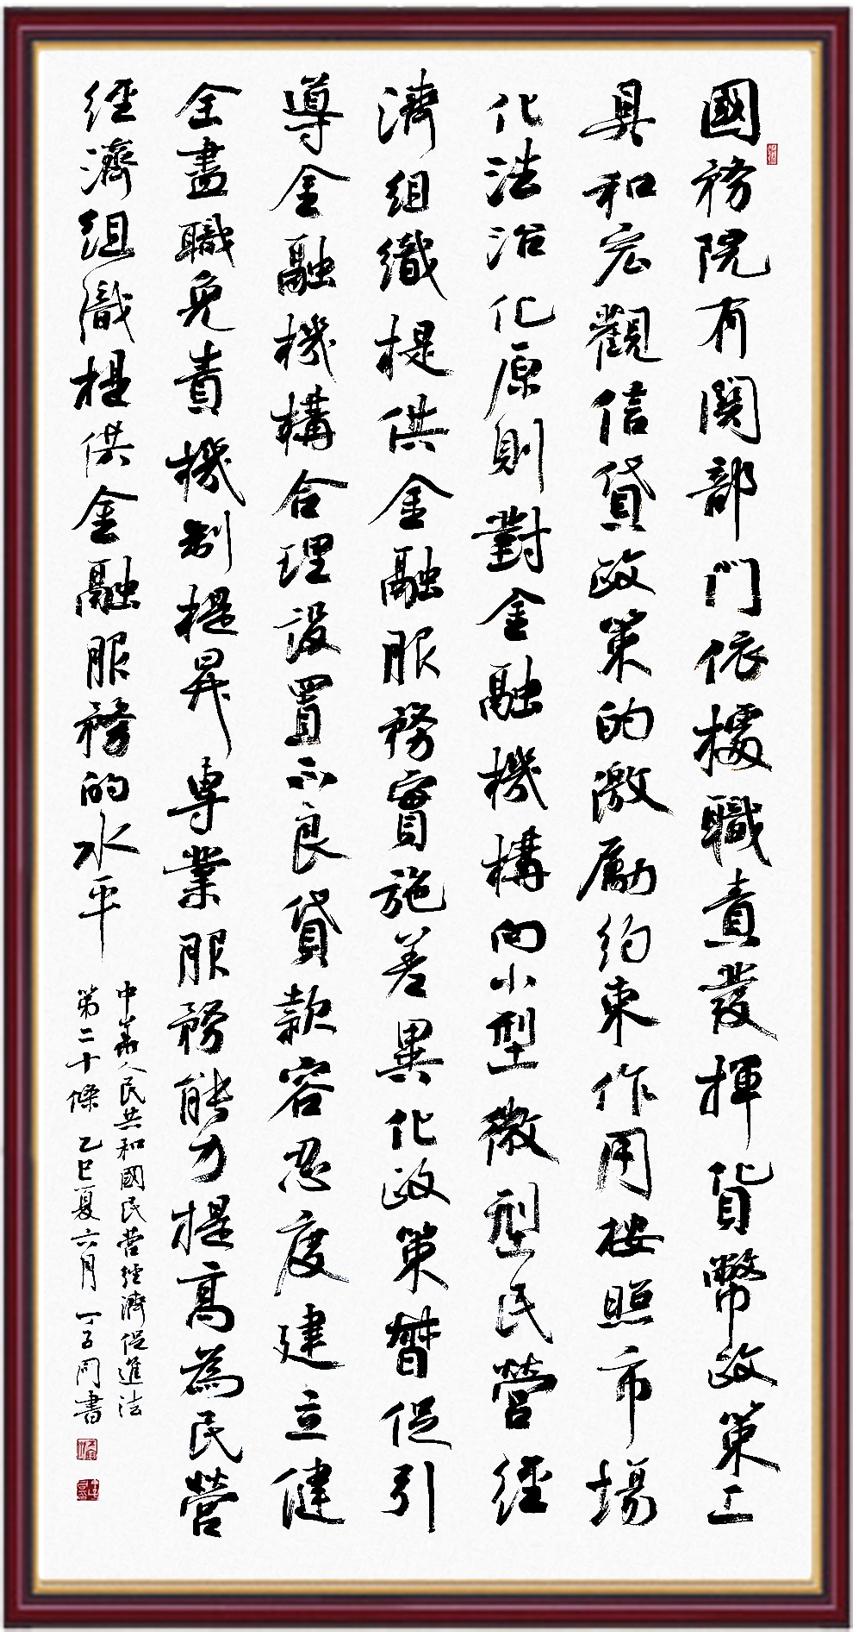 國務院有關部門依據職責發揮貨幣政策工
具和宏觀信貸政策的激勵約束作用按照市場
化法治化原則對金融機構向小型微型民營經
濟組織提供金融服務實施差異化政策督促引
導金融機構合理設置不良貸款容忍度建立健
全盡職免責機制提昇專業服務能力提高為民營
經濟組織提供金融服務的水平
中華人民共和國民營經濟促進法
第二十條 乙巳夏六月 丁子同書